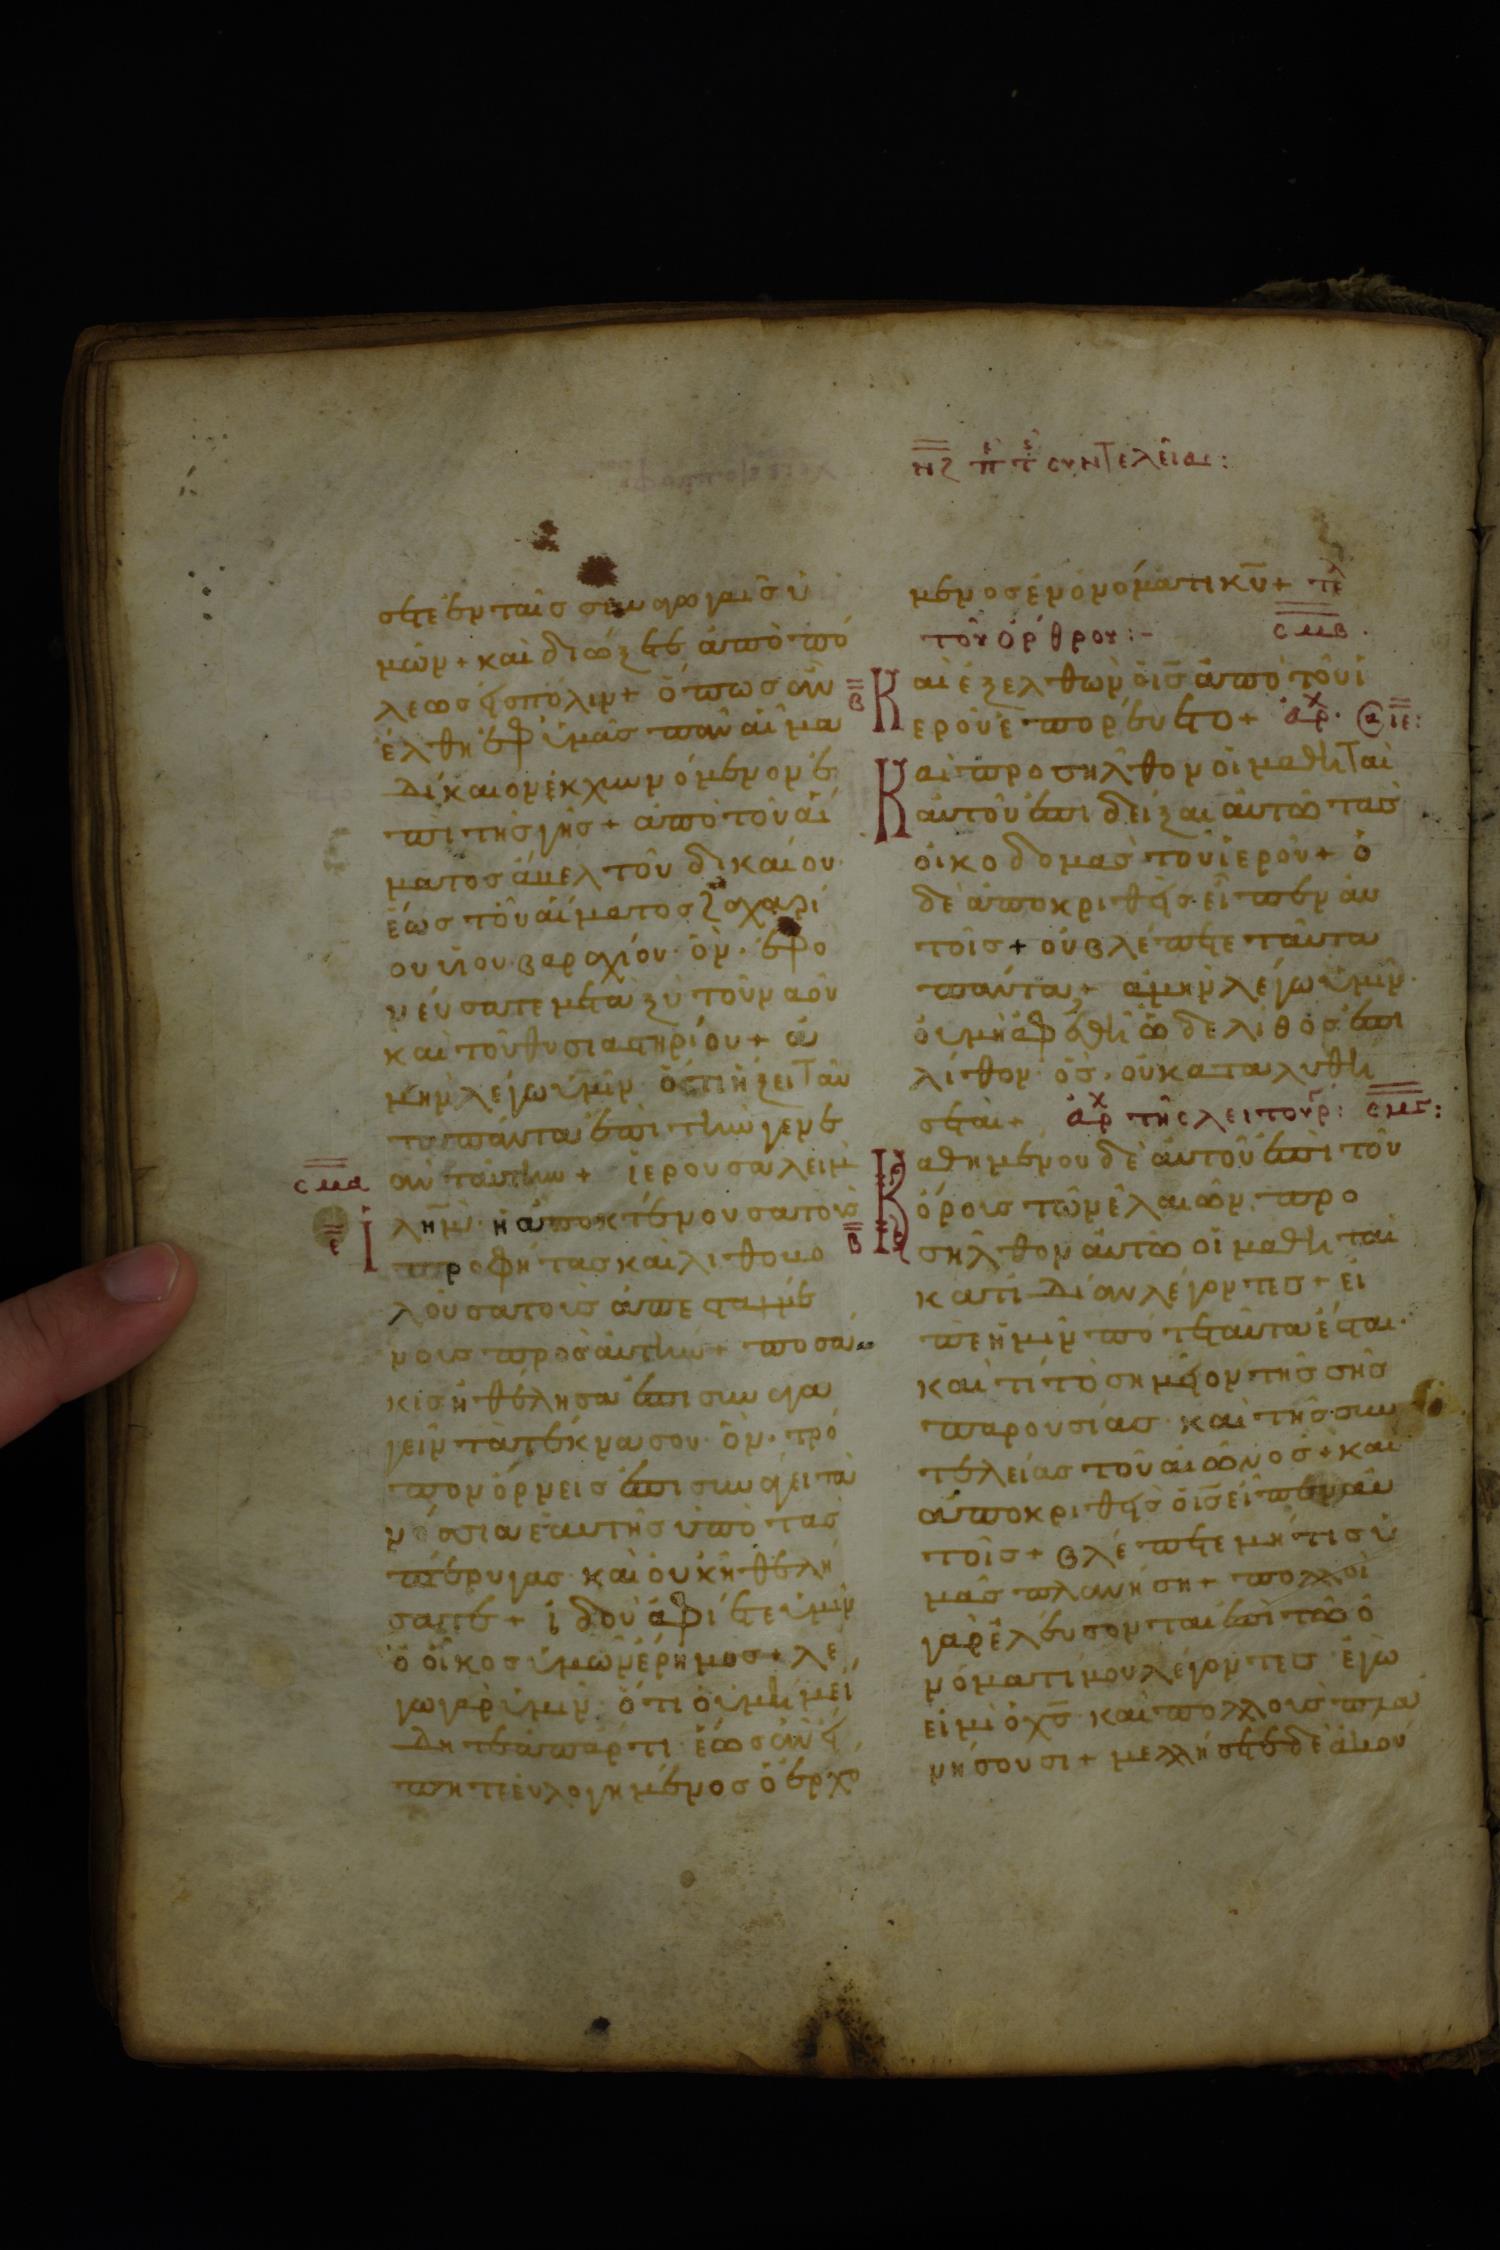 νζ π τ συντελείας:
στε ἐν ταῖς συναγωγαῖς ὑ
μῶν + καὶ διώξετε ἀπὸ πό
λεως εἰς πόλιν + ὅπως ἂν
ἔλθη ἐφ ὑμᾶς πᾶν αἷμα
δίκαιον ἐκχυνόμενον ἐ
πὶ τῆς γῆς + ἀπὸ τοῦ αἵ
ματος ἄβελ τοῦ δικαίου
ἕως τοῦ αἵματος ζαχαρί
ου υἱοῦ βαραχίου· ὃν· ἐφο
νεύσατε μεταξὺ τοῦ ναοῦ
καὶ τοῦ θυσιαστηρίου + ἀ
μὴν λέγω ὑμῖν ὅτι ἥξει ταῦ
τα πάντα ἐπὶ τὴν γενε
ὰν ταύτην + ἱερουσαλεὶμ
σμα
λημ· ἡ ἀποκτένουσα τοὺς
ε
προφήτας καὶ λιθοβο
λοῦσα τοὺς ἀπεσταλμέ
νους πρὸς αὐτήν + ποσά
κις ἠθέλησα ἐπισυναγα
γεῖν τὰ τέκνα σου· ὃν· τρό
πον ὄρνεις ἐπισυνάγει τὰ
νοσσία ἑαυτῆς ὑπὸ τὰς
πτέρυγας καὶ οὐκ ἠθελή
σατε + ἰδοὺ ἀφίεται ὑμῖν
ὁ οἶκος ὑμῶν ἔρημος + λέ
γω γὰρ ὑμῖν· ὅτι οὐ μή με ἴ
δητε ἀπάρτι ἕως ἂν εἴ
πητε εὐλογημένος ὁ ἐρχό
μενος ἐν ὀνόματι κυ + τε
τοῦ ὄρθρου:- σμβ.
β Καὶ ἐξελθὼν ὁ ις ἀπὸ τοῦ ἱ
εροῦ ἐπορεύετο + ἀρχ. α ιε:
Καὶ προσῆλθον οἱ μαθηταὶ
αὐτοῦ ἐπιδεῖξαι αὐτῶ τὰς
οἰκοδομὰς τοῦ ἱεροῦ + ὁ
δὲ ἀποκριθεὶς εἶπεν αὐ
τοῖς + οὐ βλέπετε ταῦτα
πάντα; + ἀμὴν λέγω ὑμῖν·
οὐ μὴ ἀφεθῆ ὧδε λίθος ἐπὶ
λίθον· ὃς· οὐ καταλυθή
σεται + ἀρχ τῆς λειτουργ: σμγ:
Καθημένου δὲ αὐτοῦ ἐπὶ τοῦ
β ὄρους τῶν ἐλαιῶν· προ
σῆλθον αὐτῶ οἱ μαθηταὶ
κατιδίαν λέγοντες + εἰ
πὲ ἡμῖν πότε ταῦτα ἔσται·
καὶ τί τὸ σημεῖον τῆς σῆς
παρουσίας καὶ τῆς συν
τελείας τοῦ αἰῶνος + καὶ
ἀποκριθεὶς ὁ ις εἶπεν αὐ
τοῖς + βλέπετε μή τις ὑ
μᾶς πλανήση + πολλοὶ
γὰρ ἐλεύσονται ἐπὶ τῶ ὀ
νόματί μου λέγοντες ἐγώ
εἰμι ὁ χς καὶ πολλοὺς πλα
νήσουσι + μελλήσετε δὲ ἀκού